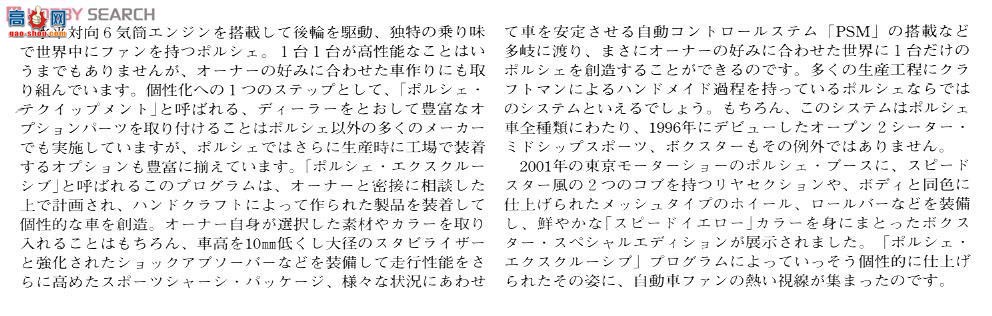 HOBBY SEARCH
高网
gao-shou.com
平対向６気筒エンジンを搭載して後輪を駆動、独特の乗り味
で世界中にファンを持つポルシェ。１台１台が高性能なことはい
うまでもありませんが、オーナーの好みに合わせた車作りにも取
り組んでいます。個性化への１つのステップとして、「ポルシェ・
テクイップメント」と呼ばれる、ディーラーをとおして豊富なオ
プションパーツを取り付けることはポルシェ以外の多くのメーカー
でも実施していますが、ポルシェではさらに生産時に工場で装着
するオプションも豊富に揃えています。「ポルシェ・エクスクルー
シブ」と呼ばれるこのプログラムは、オーナーと密接に相談した
上で計画され、ハンドクラフトによって作られた製品を装着して
個性的な車を創造。オーナー自身が選択した素材やカラーを取り
入れることはもちろん、車高を10㎜低くし大径のスタビライザー
と強化されたショックアブソーバーなどを装備して走行性能をさ
らに高めたスポーツシャーシ・パッケージ、様々な状況にあわせ
て車を安定させる自動コントロールステム「PSM」の搭載など
多岐に渡り、まさにオーナーの好みに合わせた世界に１台だけの
ポルシェを創造することができるのです。多くの生産工程にクラ
フトマンによるハンドメイド過程を持っているポルシェならでは
のシステムといえるでしょう。もちろん、このシステムはポルシェ
車全種類にわたり、1996年にデビューしたオープン２シーター・
ミドシップスポーツ、ボクスターもその例外ではありません。
2001年の東京モーターショーのポルシェ・ブースに、スピード
スター風の２つのコブを持つリヤセクションや、ボディと同色に
仕上げられたメッシュタイプのホイール、ロールバーなどを装備
し、鮮やかな「スピードイエロー」カラーを身にまとったボクス
ター・スペシャルエディションが展示されました。「ポルシェ・
エクスクルーシブ」プログラムによっていっそう個性的に仕上げ
られたその姿に、自動車ファンの熱い視線が集まったのです。